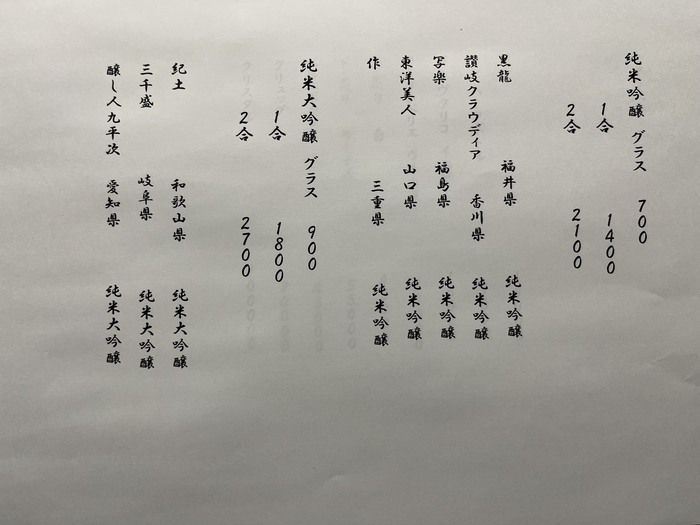 純米吟醸 グラス 700
1合 1400
2合 2100
黒龍 福井県 純米吟醸
讃岐クラウディア 香川県 純米吟醸
写楽 福島県 純米吟醸
東洋美人 山口県 純米吟醸
作 三重県 純米吟醸
純米大吟醸 グラス 900
1合 1800
2合 2700
紀土 和歌山県 純米大吟醸
三千盛 岐阜県 純米大吟醸
醸し人九平次 愛知県 純米大吟醸